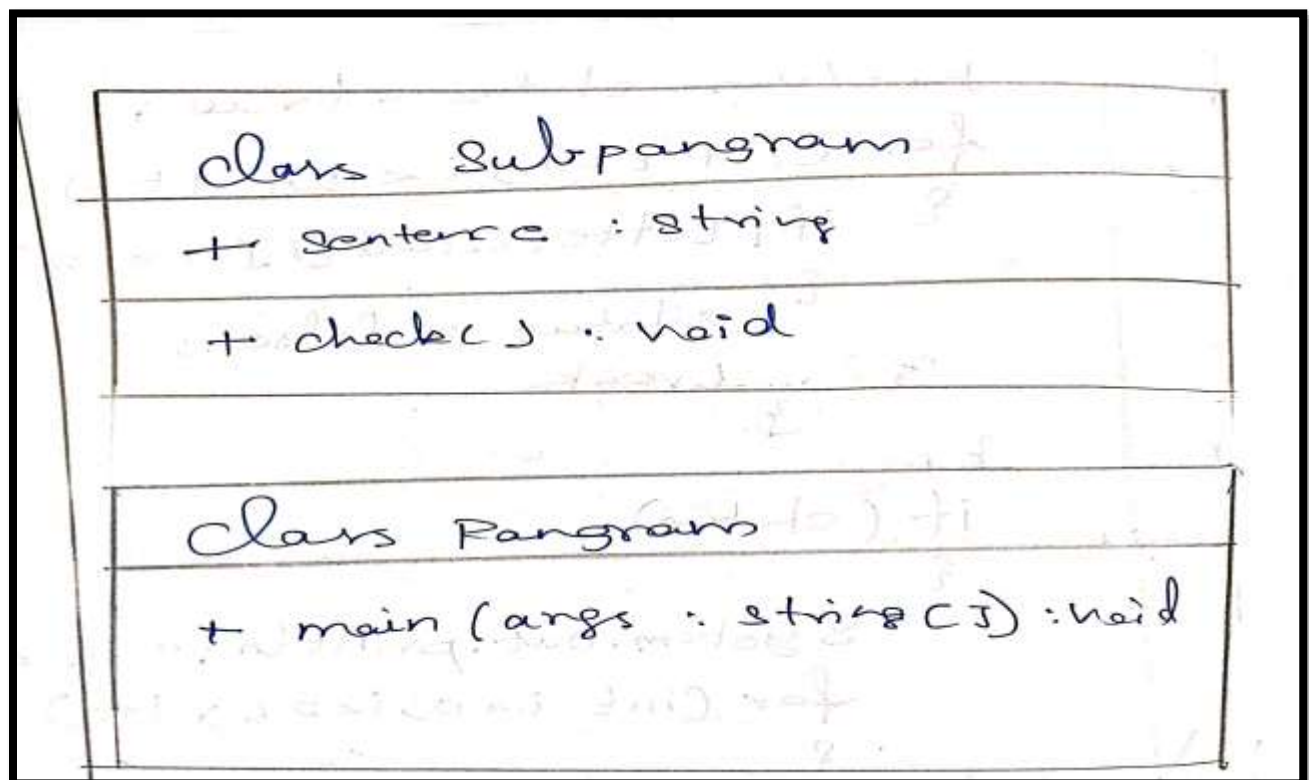 class Subpangram
+ sentence : string
+ check() : void
class Pangram
+ main (args : string[]) : void